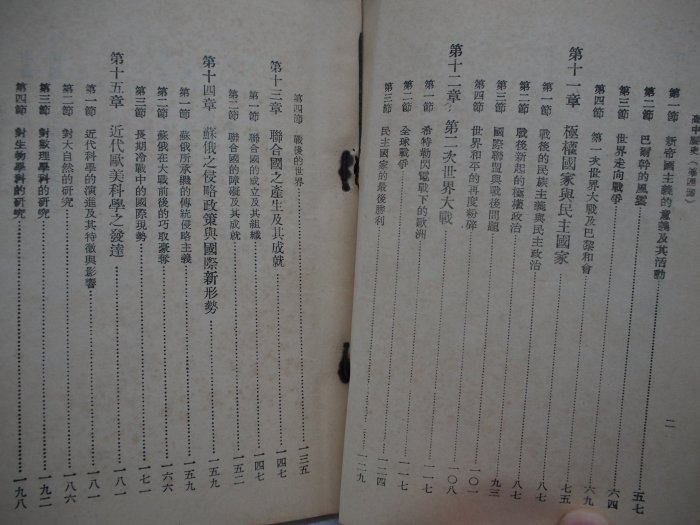 高中歷史（第四冊）
二
第一節 新帝國主義的意義及其活動 五七
第二節 巴爾幹的風雲 六四
第三節 世界走向戰爭 六九
第四節 第一次世界大戰及巴黎和會 七五
第十一章 極權國家與民主國家
第一節 戰後的民族主義與民主政治 八七
第二節 戰後新起的極權政治 九三
第三節 國際聯盟與戰後問題 一〇一
第四節 世界和平的再度粉碎 一〇八
第十二章 第二次世界大戰 一一七
第一節 希特勒閃電戰下的歐洲 一一七
第二節 全球戰爭 一二四
第三節 民主國家的最後勝利 一二九
第四節 戰後的世界 一三五
第十三章 聯合國之產生及其成就 一四七
第一節 聯合國的成立及其組織 一四七
第二節 聯合國的障礙及其成就 一五二
第十四章 蘇俄之侵略政策與國際新形勢 一五九
第一節 蘇俄所承襲的傳統侵略主義 一五九
第二節 蘇俄在大戰前後的巧取豪奪 一六六
第三節 長期冷戰中的國際現勢 一七一
第十五章 近代歐美科學之發達 一八一
第一節 近代科學的演進及其特徵與影響 一八一
第二節 對大自然的研究 一八六
第三節 對數理學科的研究 一九二
第四節 對生物學科的研究 一九八